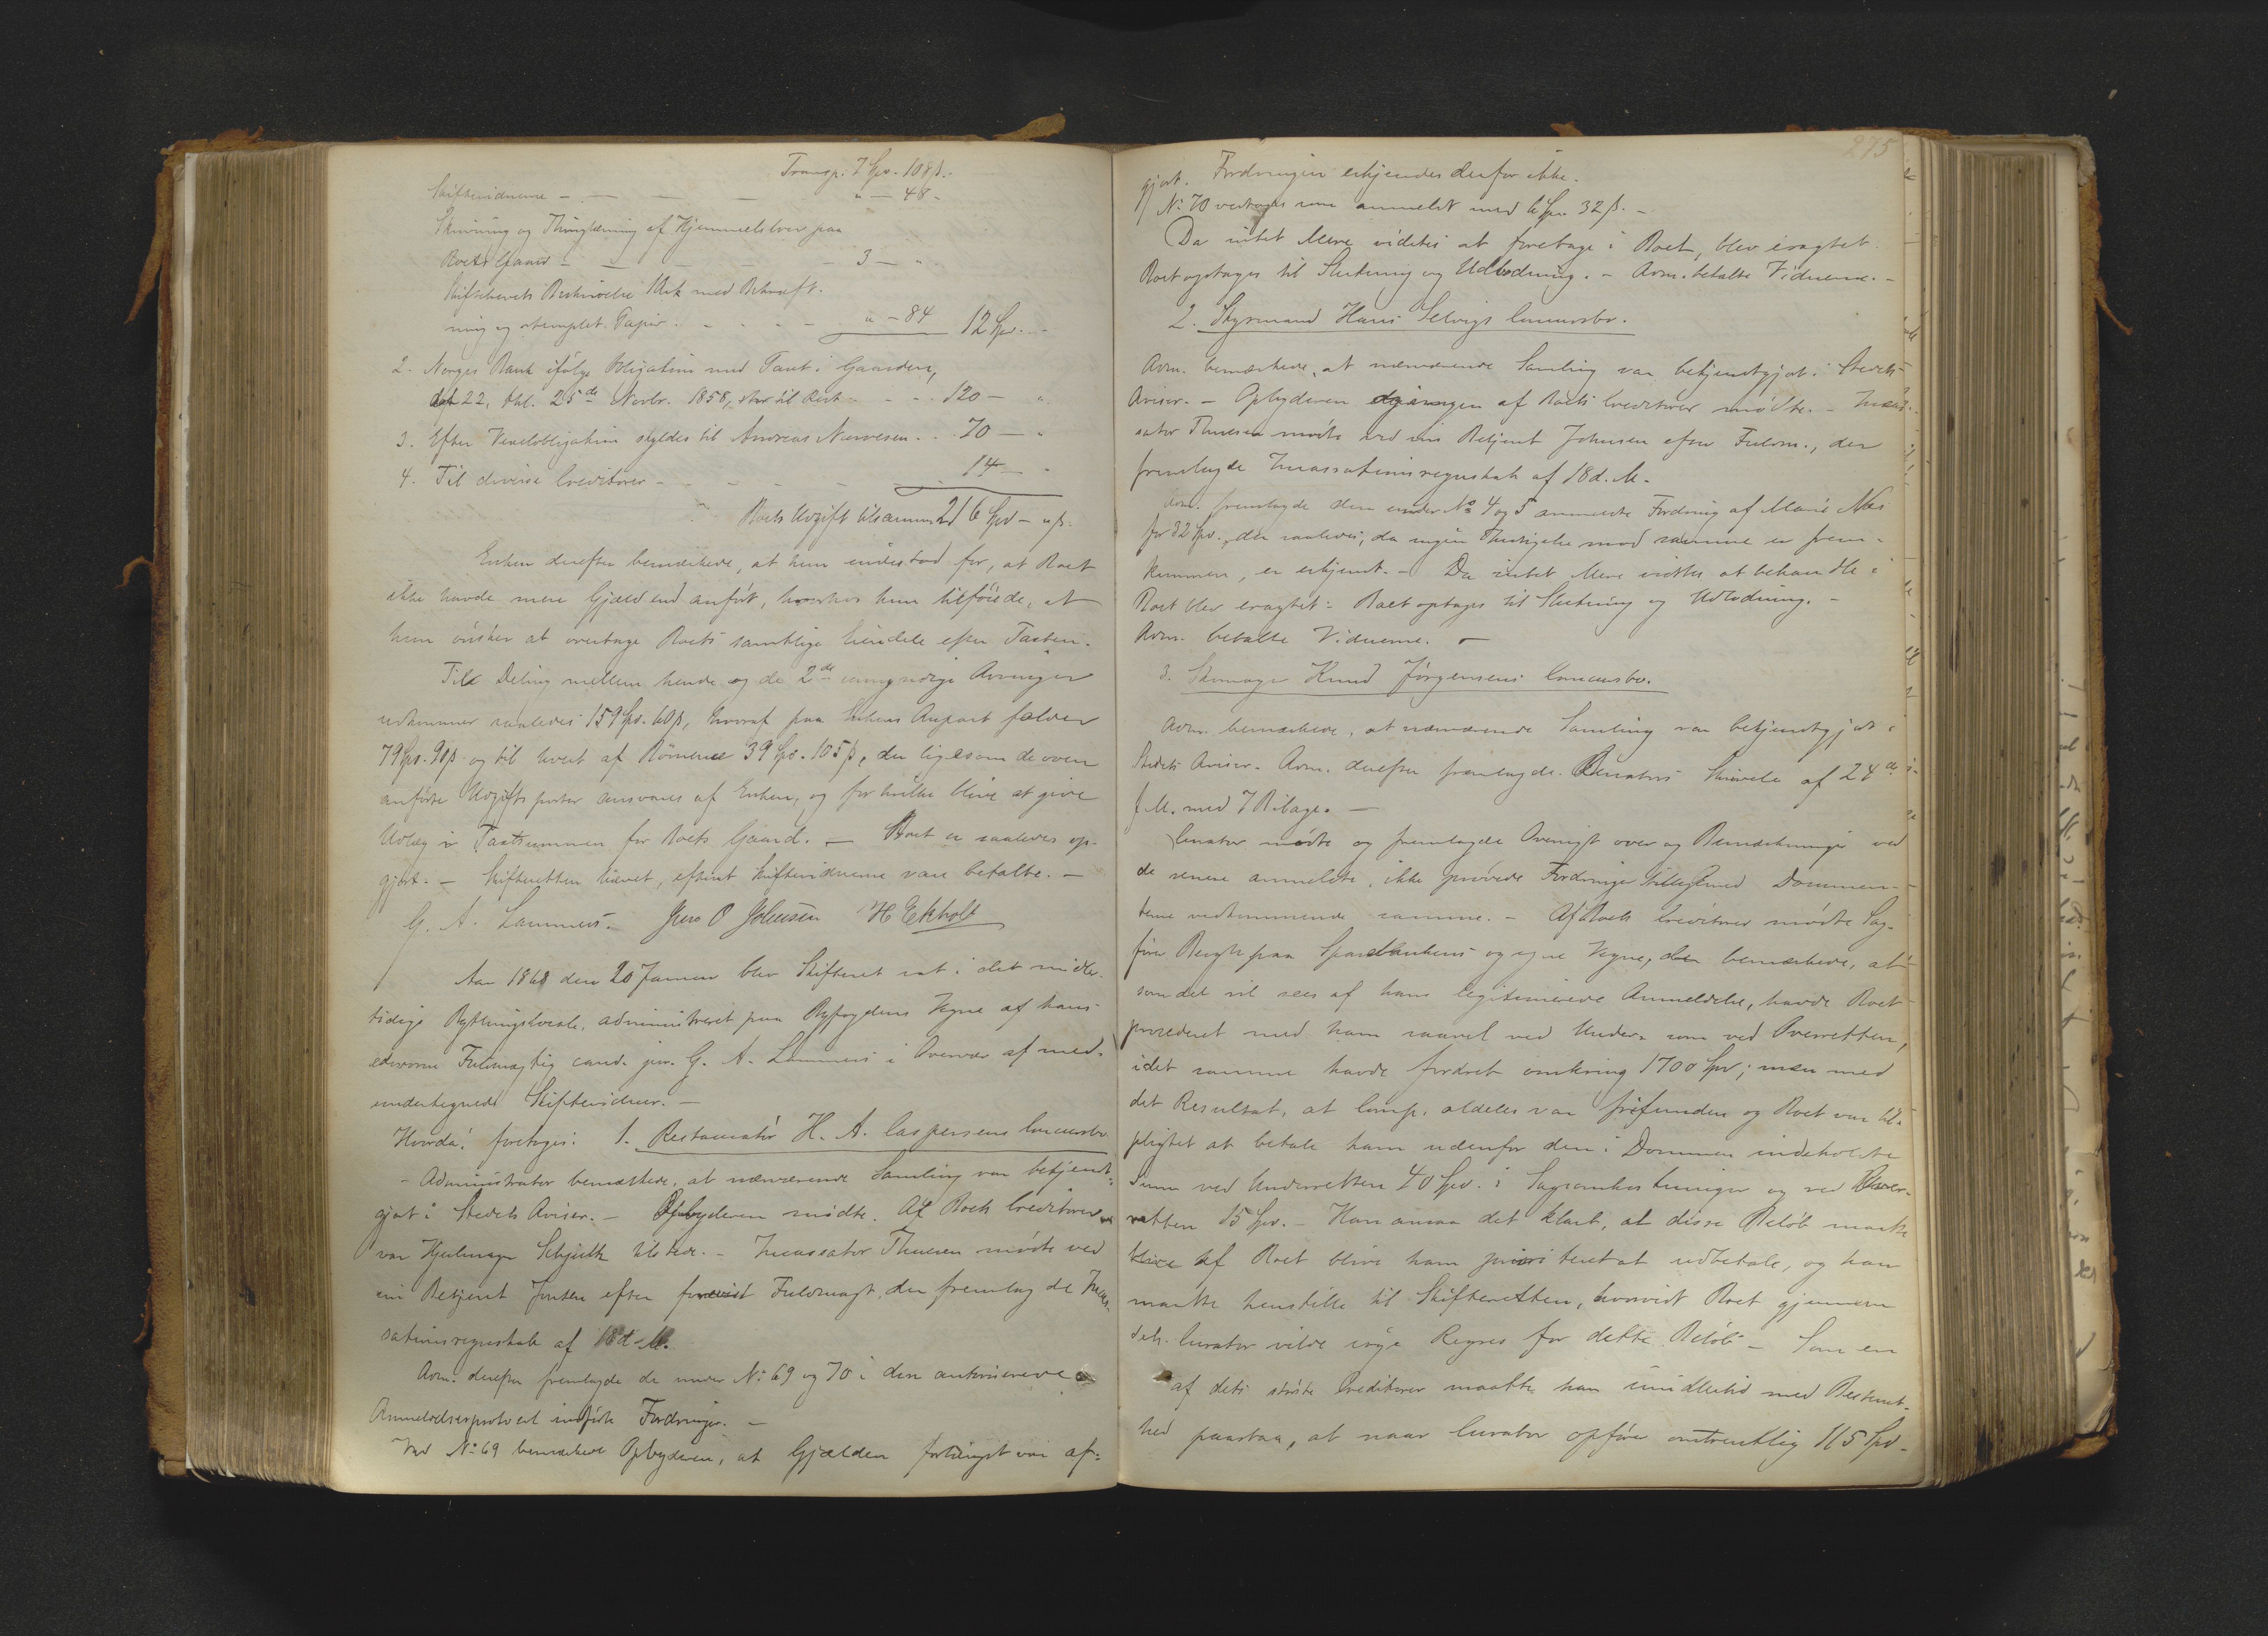 Transp. 7 Spd. 108 ß.
Skiftevidnerne - - - - " - 48 -
Skrivning og Thinglæsning af Hjemmelsbrev paa
Boets Gaard - - - - - 3 - "
Skiftebrevets Beskrivelse Ark med Bekræft-
ning og stemplet Papir - - - " - 84 12 Spd. -
2. Norges Bank ifølge Obligation med Pant i Gaarden,
dat 22, thl. 25de Novbr. 1858, stor til Rest - - - 120 - "
3. Efter Vexelobligation skyldes til Andreas Narvesen . . 70 - "
4. Til diverse Creditorer - - - - 14 - "
Boets Udgift tilsammen 216 Spd - " ß.
Enken derefter bemærkede, at hun indestod for, at Boet
ikke havde mere Gjæld end anført, hvorhos hun tilføiede, at
hun ønsker at overtage Boets samtlige Eiendele efter Taxten.
Til Deling mellem hende og de 2de umyndige Arvinger
udkommer saaledes 159 Spd. 60 ß, hvoraf paa Enkens Anpart falder
79 Spd. 90 ß og til hvert af Børnene 39 Spd. 105 ß, der ligesom de oven
anførte Udgiftsposter ansvares af Enken, og for hvilke bliver at give
Udlæg i Taxtsummen for Boets Gaard. - Boet er saaledes op-
gjort. - Skifteretten hævet, efterat Skiftevidnerne vare betalte. -
G. A. Lammers. Jens O Johnsen H Ekholt
Aar 1868 den 20 Januar blev Skifteret sat i det midler-
tidige Bythingslocale, administreret paa Byfogdens Vegne af hans
edsvorne Fuldmægtig cand. jur. G. A. Lammers i Overvær af med-
undertegnede Skiftevidner. -
Hvorda: foretoges: 1. Restauratør H. A. Caspersens Concursbo
- Administrator bemærkede, at nærværende Samling var bekjendt-
gjort i Stedets Aviser. - Opbyderen mødte. Af Boets Creditorer
var Hjulmager Schjølth tilstede. - Incassator Thuesen mødte ved
sin Betjent Jonsen efter forevist Fuldmagt, der fremlagde Incas-
sationsregnskab af 18 d. M.
Adm. derefter fremlagde de under No 69 og 70 i den authoriserede
Anmeldelsesprotocol indførte Fordringer. -
Ved No 69 bemærkede Opbyderen, at Gjælden forlængst var af-
275
gjort. Fordringen erkjendes derfor ikke.
No 70 vedtoges som anmeldt med 6 Spd. 32 ß. -
Da intet Mere vidstes at foretage i Boet, blev eragtet
Boet optages til Slutning og Udlodning. - Adm. betalte Vidnerne. -
2. Styrmand Hans Selvigs Concursbo.
Adm. bemærkede, at nærværende Samling var bekjendtgjort i Stedets
Aviser. - Opbyderen og ingen af Boets Creditorer mødte. - Incas-
sator Thuesen mødte ved sin Betjent Johnsen efter Fuldm., der
fremlagde Incassationsregnskab af 18 d. M.
Adm. fremlagde den under No 4 og 5 anmeldte Fordring af Marie Næs
for 32 Spd., der saaledes, da ingen Indsigelse mod samme er frem-
kommen, er erkjendt. - Da intet Mere vidstes at behandle i
Boet blev eragtet: Boet optages til Slutning og Udlodning. -
Adm. betalte Vidnerne. -
3. Skomager Knud Jørgensens Concursbo.
Adm. bemærkede, at nærværende Samling var bekjendtgjort i
Stedets Aviser. Adm. derefter fremlagde Curators Skrivelse af 24de
f. M. med 7 Bilage. -
Curator mødte og fremlagde Oversigt over og Bemærkninger ved
de senere anmeldte, ikke prøvede Fordringer tilligemed Documen-
terne vedkommende samme. - Af Boets Creditorer mødte Sag-
fører Bergh paa Sparebankens og egne Vegne, der bemærkede, at
som det vil sees af hans legitimerede Anmeldelse, havde Boet
procederet med ham saavel ved Under- som ved Overretten,
idet samme havde fordret omkring 1700 Spd; men med
det Resultat, at Comp. aldeles var frifunden og Boet var til-
pligtet at betale ham udenfor den i Dommen indeholdte
Sum ved Underretten 40 Spd. i Sagsomkostninger og ved Over-
retten 15 Spd. - Han ansaa det klart, at disse Beløb maatte
blive af Boet blive ham prioriteret at udbetale, og han
maatte henstille til Skifteretten, hvorvidt Boet gjennem
dets Curator vilde søge Regres for dette Beløb - Som en
af dets største Creditorer maatte han imidlertid med Bestemt-
hed paastaa, at naar Curator opfører omtrentlig 115 Spd -